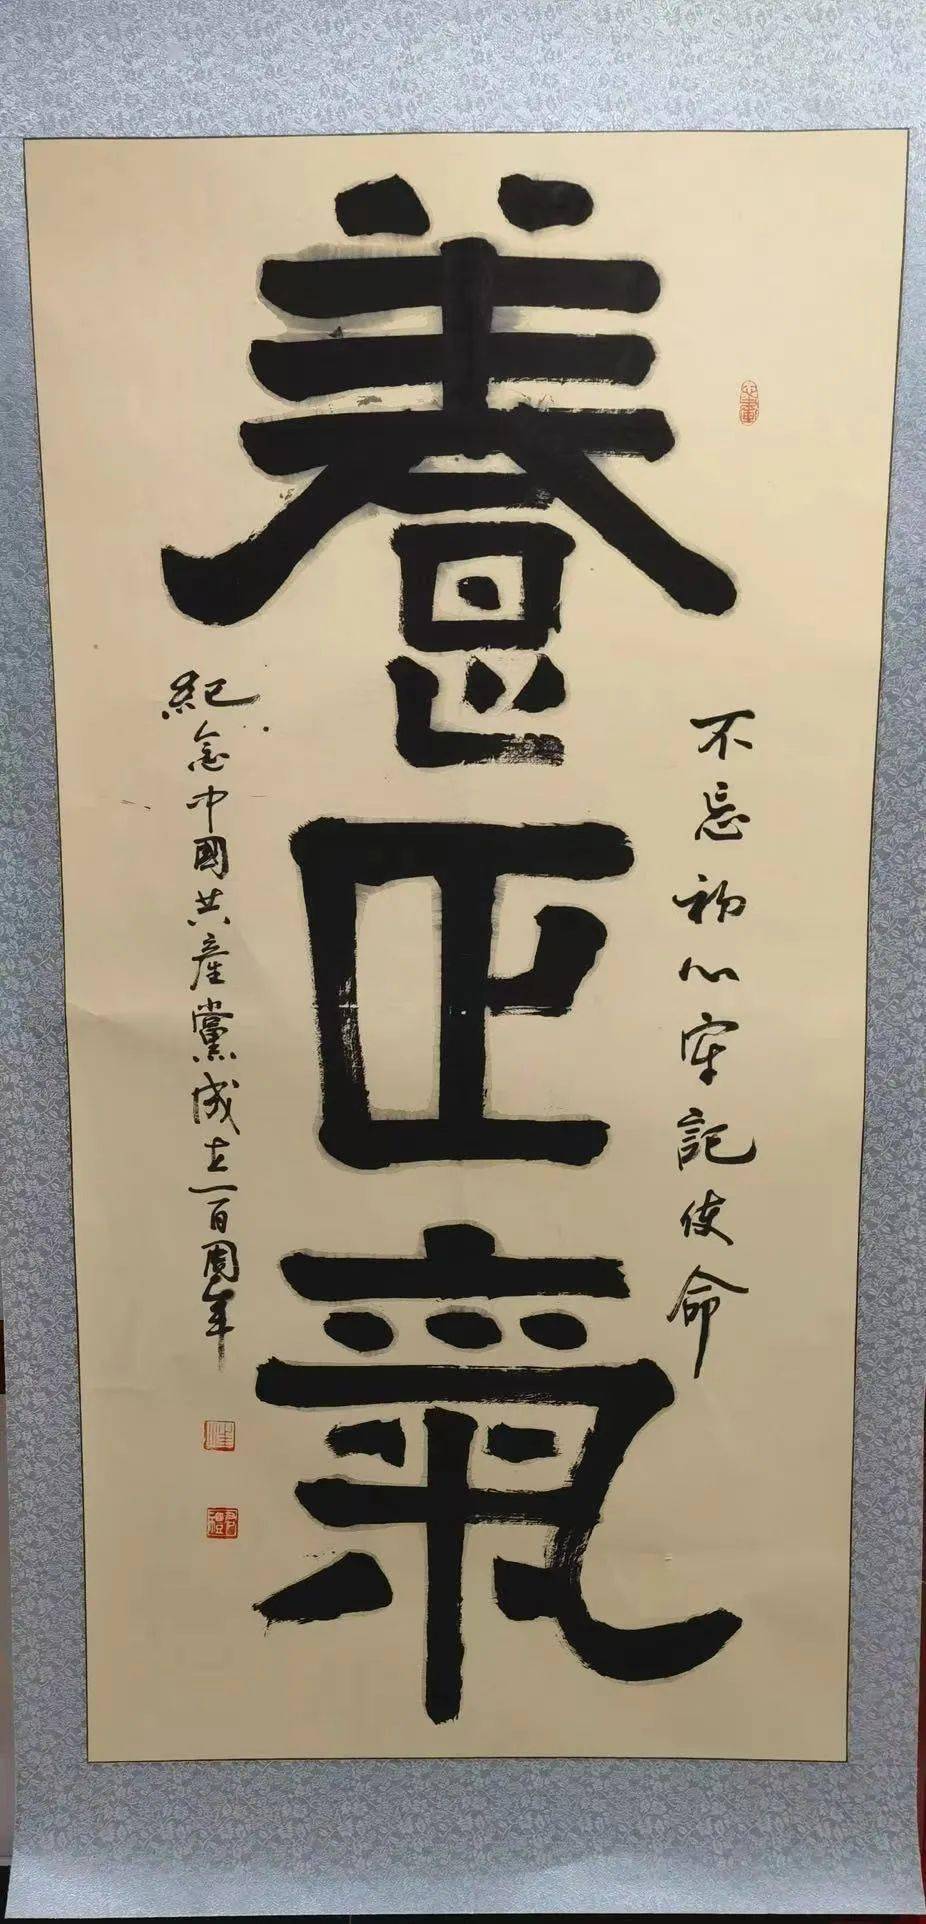 養正氣
不忘初心牢記使命
紀念中國共産黨成立一百周年